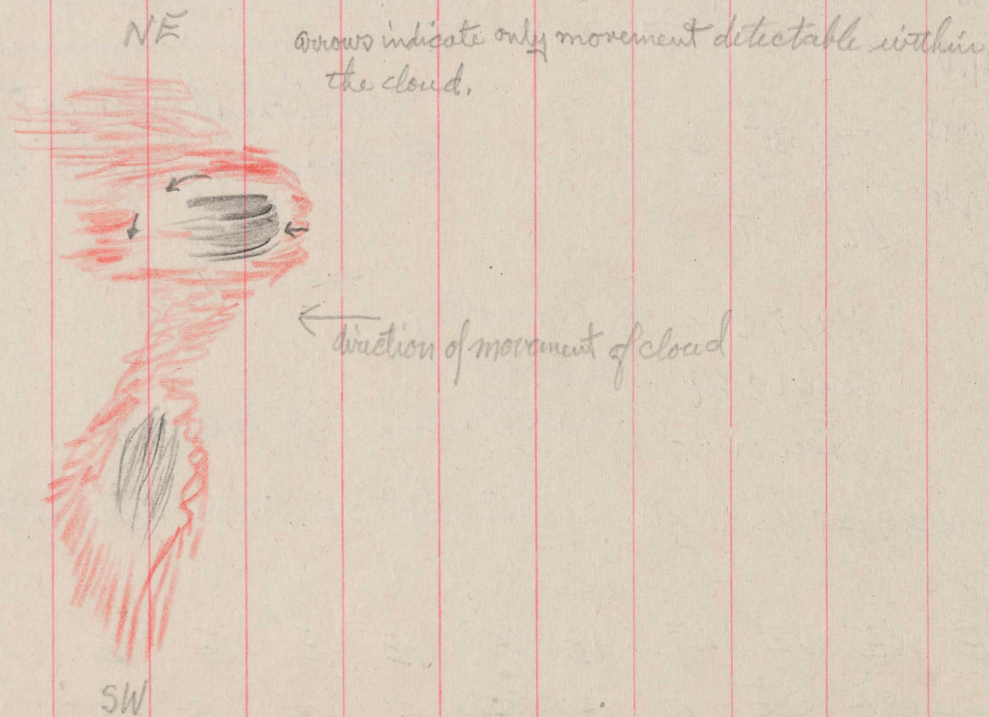 NE
arrows indicate only movement detectable within
the cloud.
direction of movement of cloud
SW